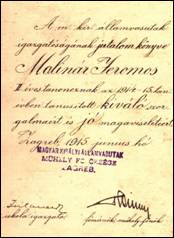 A m. kir. államvasutak
igazgatóságának jutalom könyve
Molinár Jeromos
II éves tanoncznak az 1914-15. tan
évben tanusított kiváló szor
galmaért és jó magaviseletéért
Zagreb, 1915 junius hó
MAGYAR KIRÁLYI ÁLLAMVASUTAK
MŰHELY FŐNÖKSÉGE
ZÁGREB.
iskola igazgató
főmérnök, műhely-főnök